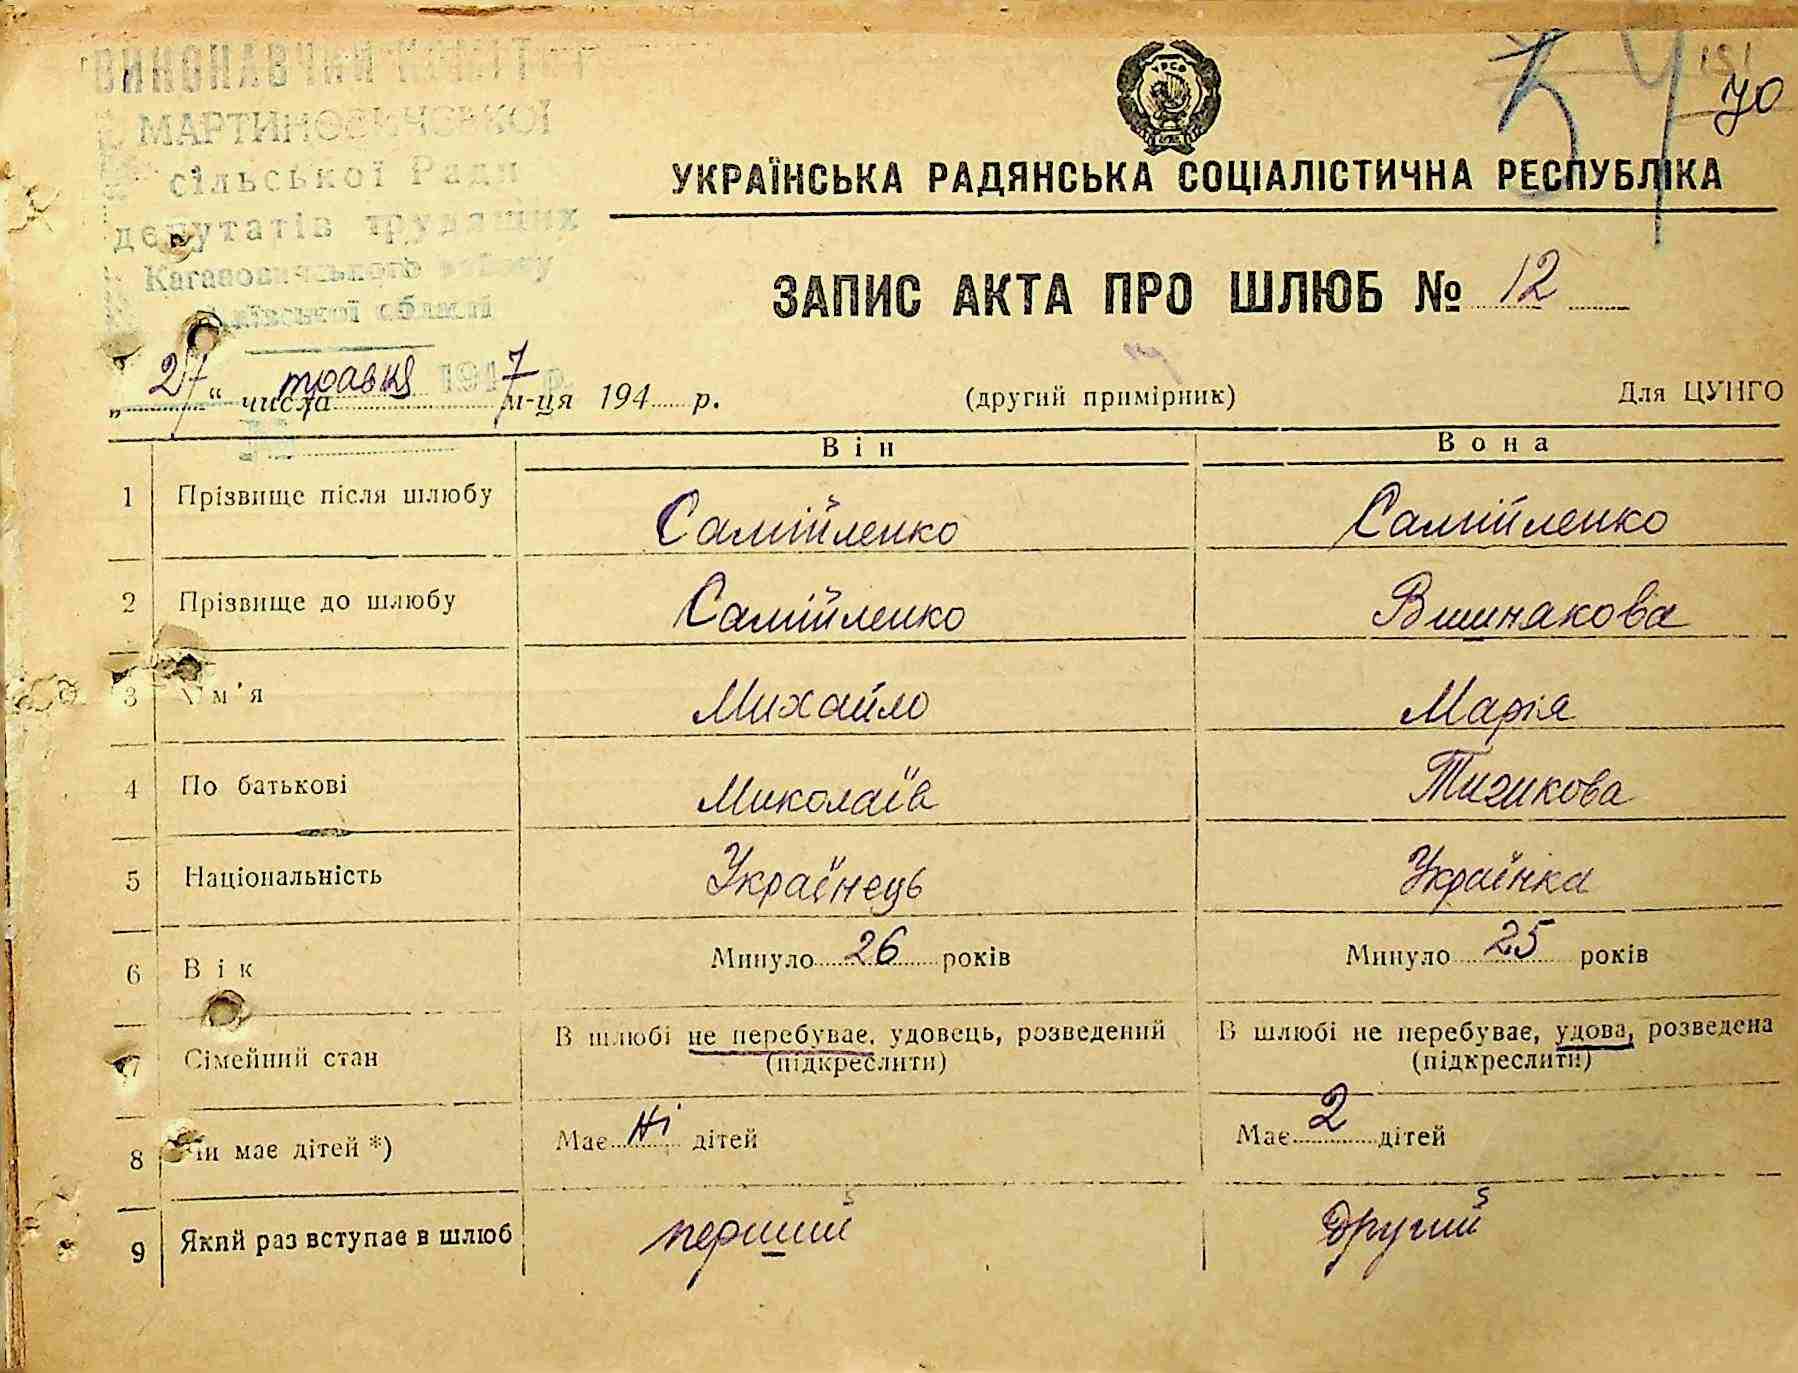 ВИКОНАВЧИЙ КОМІТЕТ
МАРТИНОВИЧСЬКОЇ
сільської Ради
депутатів трудящих
Кагановичського району
Київської області
151
70
УРСР
УКРАЇНСЬКА РАДЯНСЬКА СОЦІАЛІСТИЧНА РЕСПУБЛІКА
ЗАПИС АКТА ПРО ШЛЮБ № 12
„27“ числа травня м-ця 1947 р.
(другий примірник)
Для ЦУНГО
Він Вона
1 Прізвище після шлюбу Самійленко Самійленко
2 Прізвище до шлюбу Самійленко Вишнякова
3 Ім'я Михайло Марія
4 По батькові Миколаїв
5 Національність Українець Українка
6 Вік Минуло 26 років Минуло 25 років
7 Сімейний стан В шлюбі не перебуває, удовець, розведений В шлюбі не перебуває, удова, розведена
(підкреслити) (підкреслити)
8 Чи має дітей *) Має Ні дітей Має 2 дітей
9 Який раз вступає в шлюб перший другий